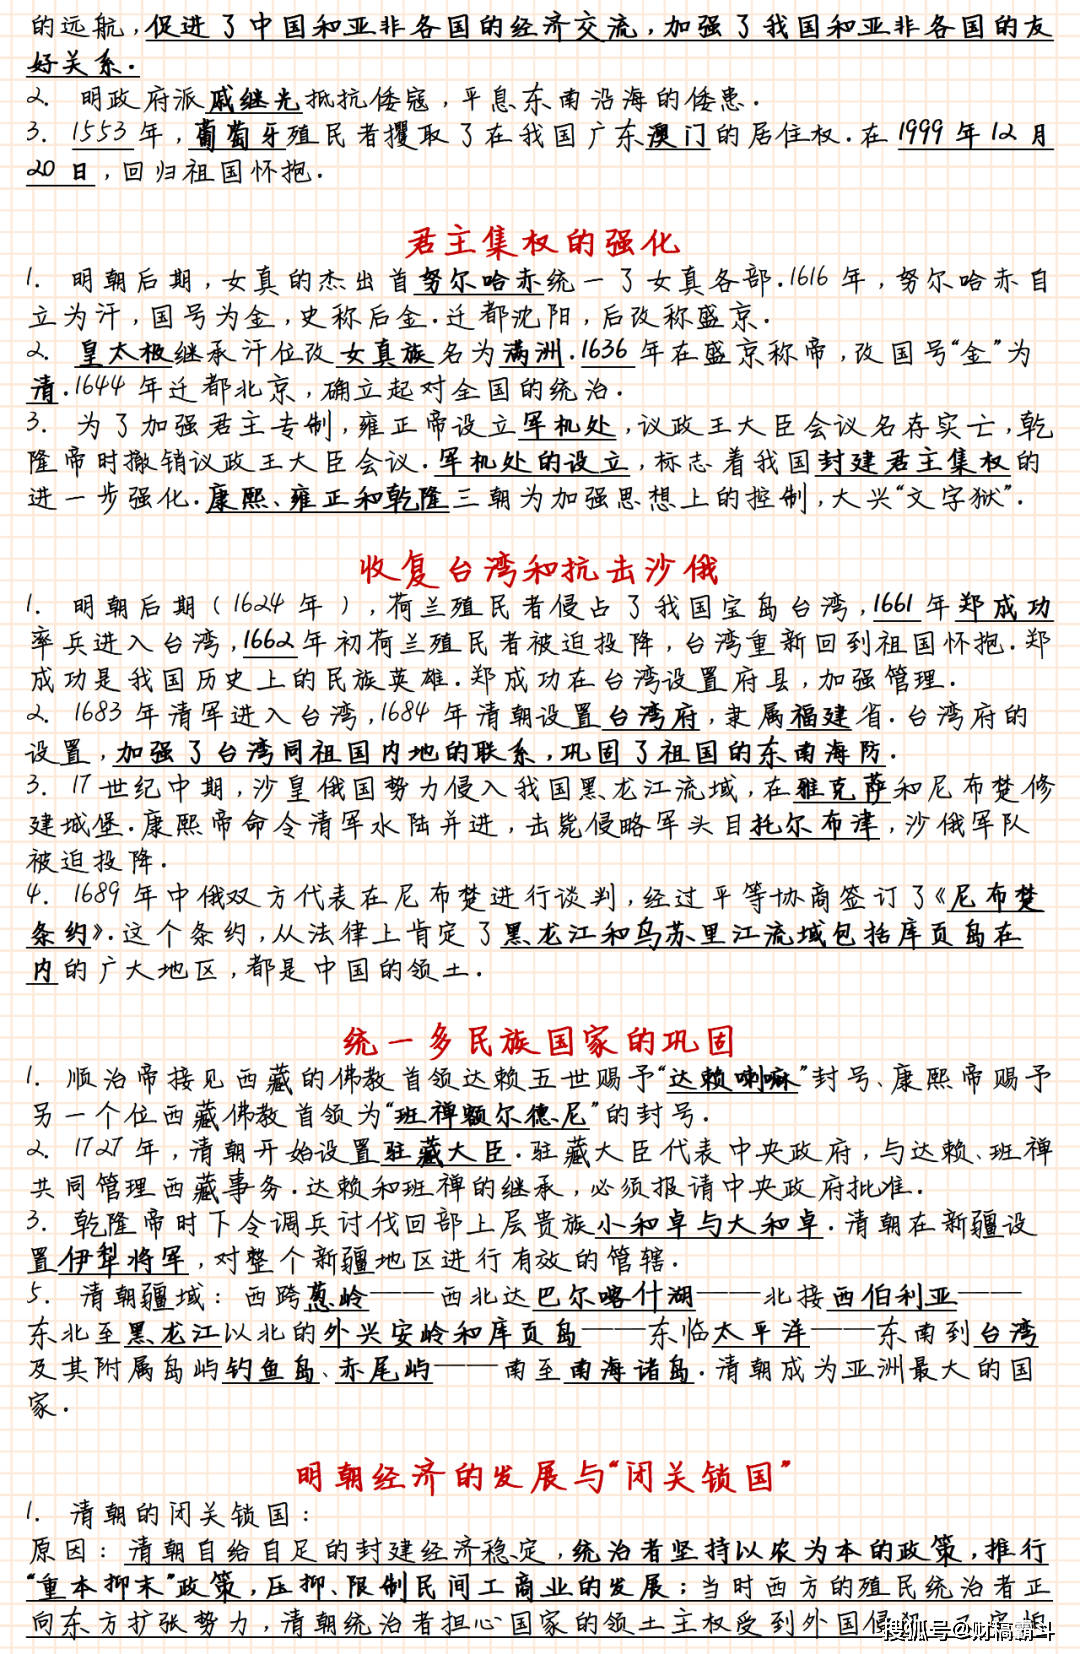 的远航,促进了中国和亚非各国的经济交流,加强了我国和亚非各国的友
好关系.
2. 明政府派戚继光抵抗倭寇,平息东南沿海的倭患.
3. 1553年,葡萄牙殖民者攫取了在我国广东澳门的居住权.在1999年12月
20日,回归祖国怀抱.
君主集权的强化
1. 明朝后期,女真的杰出首努尔哈赤统一了女真各部.1616年,努尔哈赤自
立为汗,国号为金,史称后金.迁都沈阳,后改称盛京.
2. 皇太极继承汗位改女真族名为满洲.1636年在盛京称帝,改国号“金”为
清.1644年迁都北京,确立起对全国的统治.
3. 为了加强君主专制,雍正帝设立军机处,议政王大臣会议名存实亡,乾
隆帝时撤销议政王大臣会议.军机处的设立,标志着我国封建君主集权的
进一步强化.康熙、雍正和乾隆三朝为加强思想上的控制,大兴“文字狱”.
收复台湾和抗击沙俄
1. 明朝后期(1624年),荷兰殖民者侵占了我国宝岛台湾,1661年郑成功
率兵进入台湾,1662年初荷兰殖民者被迫投降,台湾重新回到祖国怀抱.郑
成功是我国历史上的民族英雄.郑成功在台湾设置府县,加强管理.
2. 1683年清军进入台湾,1684年清朝设置台湾府,隶属福建省.台湾府的
设置,加强了台湾同祖国内地的联系,巩固了祖国的东南海防.
3. 17世纪中期,沙皇俄国势力侵入我国黑龙江流域,在雅克萨和尼布楚修
建城堡.康熙帝命令清军水陆并进,击毙侵略军头目托尔布津,沙俄军队
被迫投降.
4. 1689年中俄双方代表在尼布楚进行谈判,经过平等协商签订了《尼布楚
条约》.这个条约,从法律上肯定了黑龙江和乌苏里江流域包括库页岛在
内的广大地区,都是中国的领土.
统一多民族国家的巩固
1. 顺治帝接见西藏的佛教首领达赖五世赐予“达赖喇嘛”封号、康熙帝赐予
另一个位西藏佛教首领为“班禅额尔德尼”的封号.
2. 1727年,清朝开始设置驻藏大臣.驻藏大臣代表中央政府,与达赖、班禅
共同管理西藏事务.达赖和班禅的继承,必须报请中央政府批准.
3. 乾隆帝时下令调兵讨伐回部上层贵族小和卓与大和卓.清朝在新疆设
置伊犁将军,对整个新疆地区进行有效的管辖.
5. 清朝疆域: 西跨葱岭——西北达巴尔喀什湖——北接西伯利亚——
东北至黑龙江以北的外兴安岭和库页岛——东临太平洋——东南到台湾
及其附属岛屿钓鱼岛、赤尾屿——南至南海诸岛.清朝成为亚洲最大的国
家.
明朝经济的发展与“闭关锁国”
1. 清朝的闭关锁国:
原因: 清朝自给自足的封建经济稳定,统治者坚持以农为本的政策,推行
“重本抑末”政策,压抑、限制民间工商业的发展;当时西方的殖民统治者正
向东方扩张势力,清朝统治者担心国家的领土主权受到外国侵
搜狐号@财稿霸斗